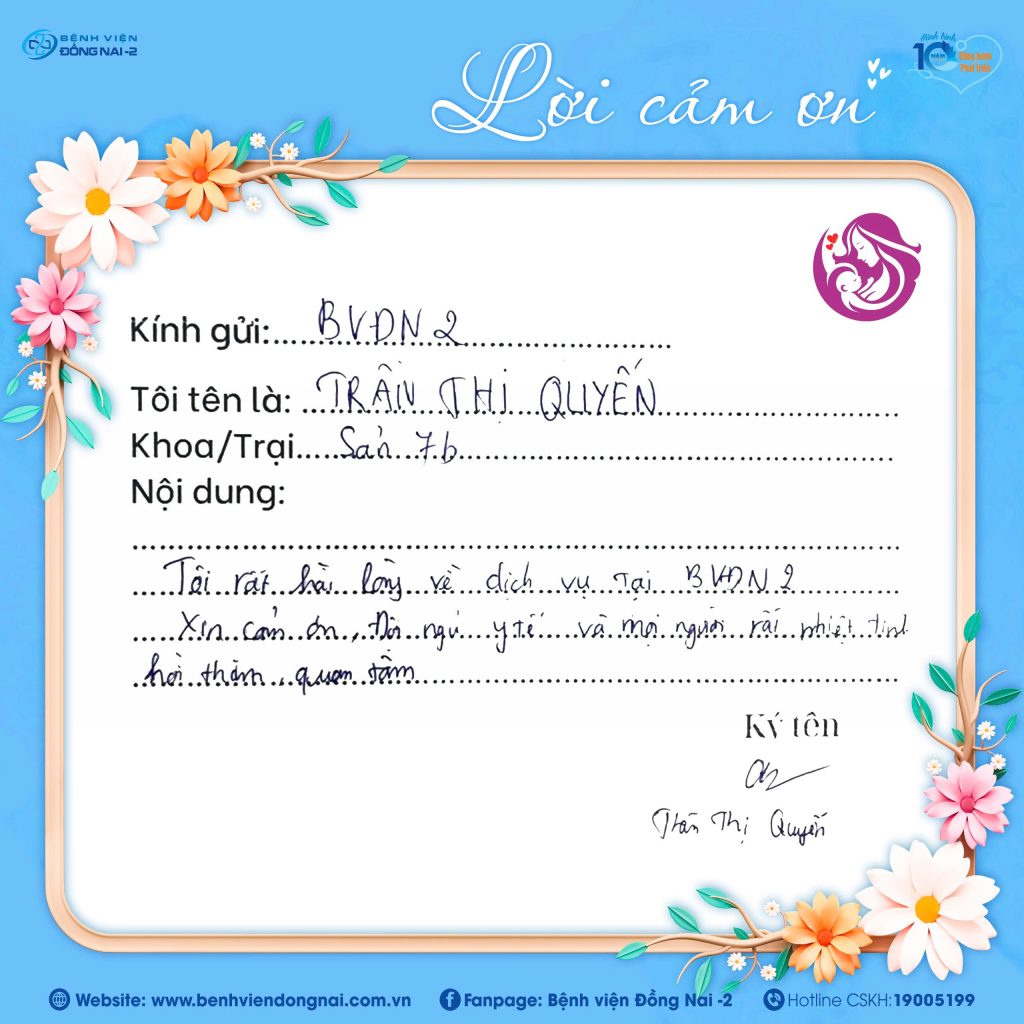 BỆNH VIỆN
ĐỒNG NAI -2
Hành trình
10 NĂM
Phát triển
Lời cảm ơn
Kính gửi:......BVĐN 2......
Tôi tên là: ...TRẦN THỊ QUYẾN......
Khoa/Trại.....Sản 7b......
Nội dung:
Tôi rất hài lòng về dịch vụ tại BVĐN 2
Xin cảm ơn, Đội ngũ y tế và mọi người rất nhiệt tình
hỏi thăm, quan tâm
Ký tên
Trần Thị Quyến
Website: www.benhviendongnai.com.vn
Fanpage: Bệnh viện Đồng Nai -2
Hotline CSKH:19005199